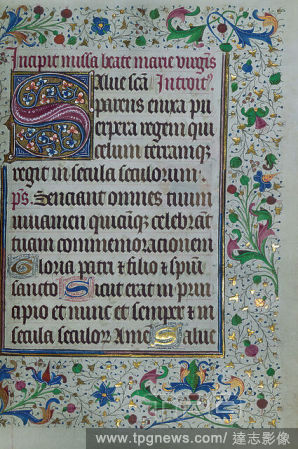 Incipit missa beate marie virgis
Salve scā Introit⁹
parens enixa pu
erpera regem qui
celum terramq̄
regit in secula seculorum.
p̄s. Senciant omnes tuum
iuvamen quicūq̄ celebrāt
tuam commemorationem
Gloria patri ⁊ filio ⁊ spūi
sancto Sicut erat in prin
cipio et nunc et semper ⁊ in
secula seculor Amē Salve
www.tpgnews.com/ 達志影像